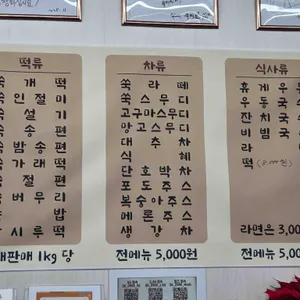 떡류
쑥개떡
쑥인절미
쑥설기
쑥송편
쑥밤송편
쑥가래떡
절편
버무리
밥
시루떡
판매 1kg 당
차류
쑥라떼
쑥스무디
고구마스무디
망고스무디
대추차
식혜
단호박차
포도주스
복숭아주스
메론주스
생강차
전메뉴 5,000원
식사류
휴게우
우동국
잔치국
비빔국
라
떡
라면은 3,00
전메뉴 5,0